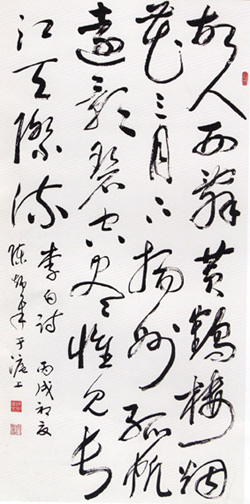 故人西辭黄鶴樓烟
花三月下揚州孤帆
遠影碧空盡惟見長
江天際流
李白詩 丙戌初夏
陳 于滬上